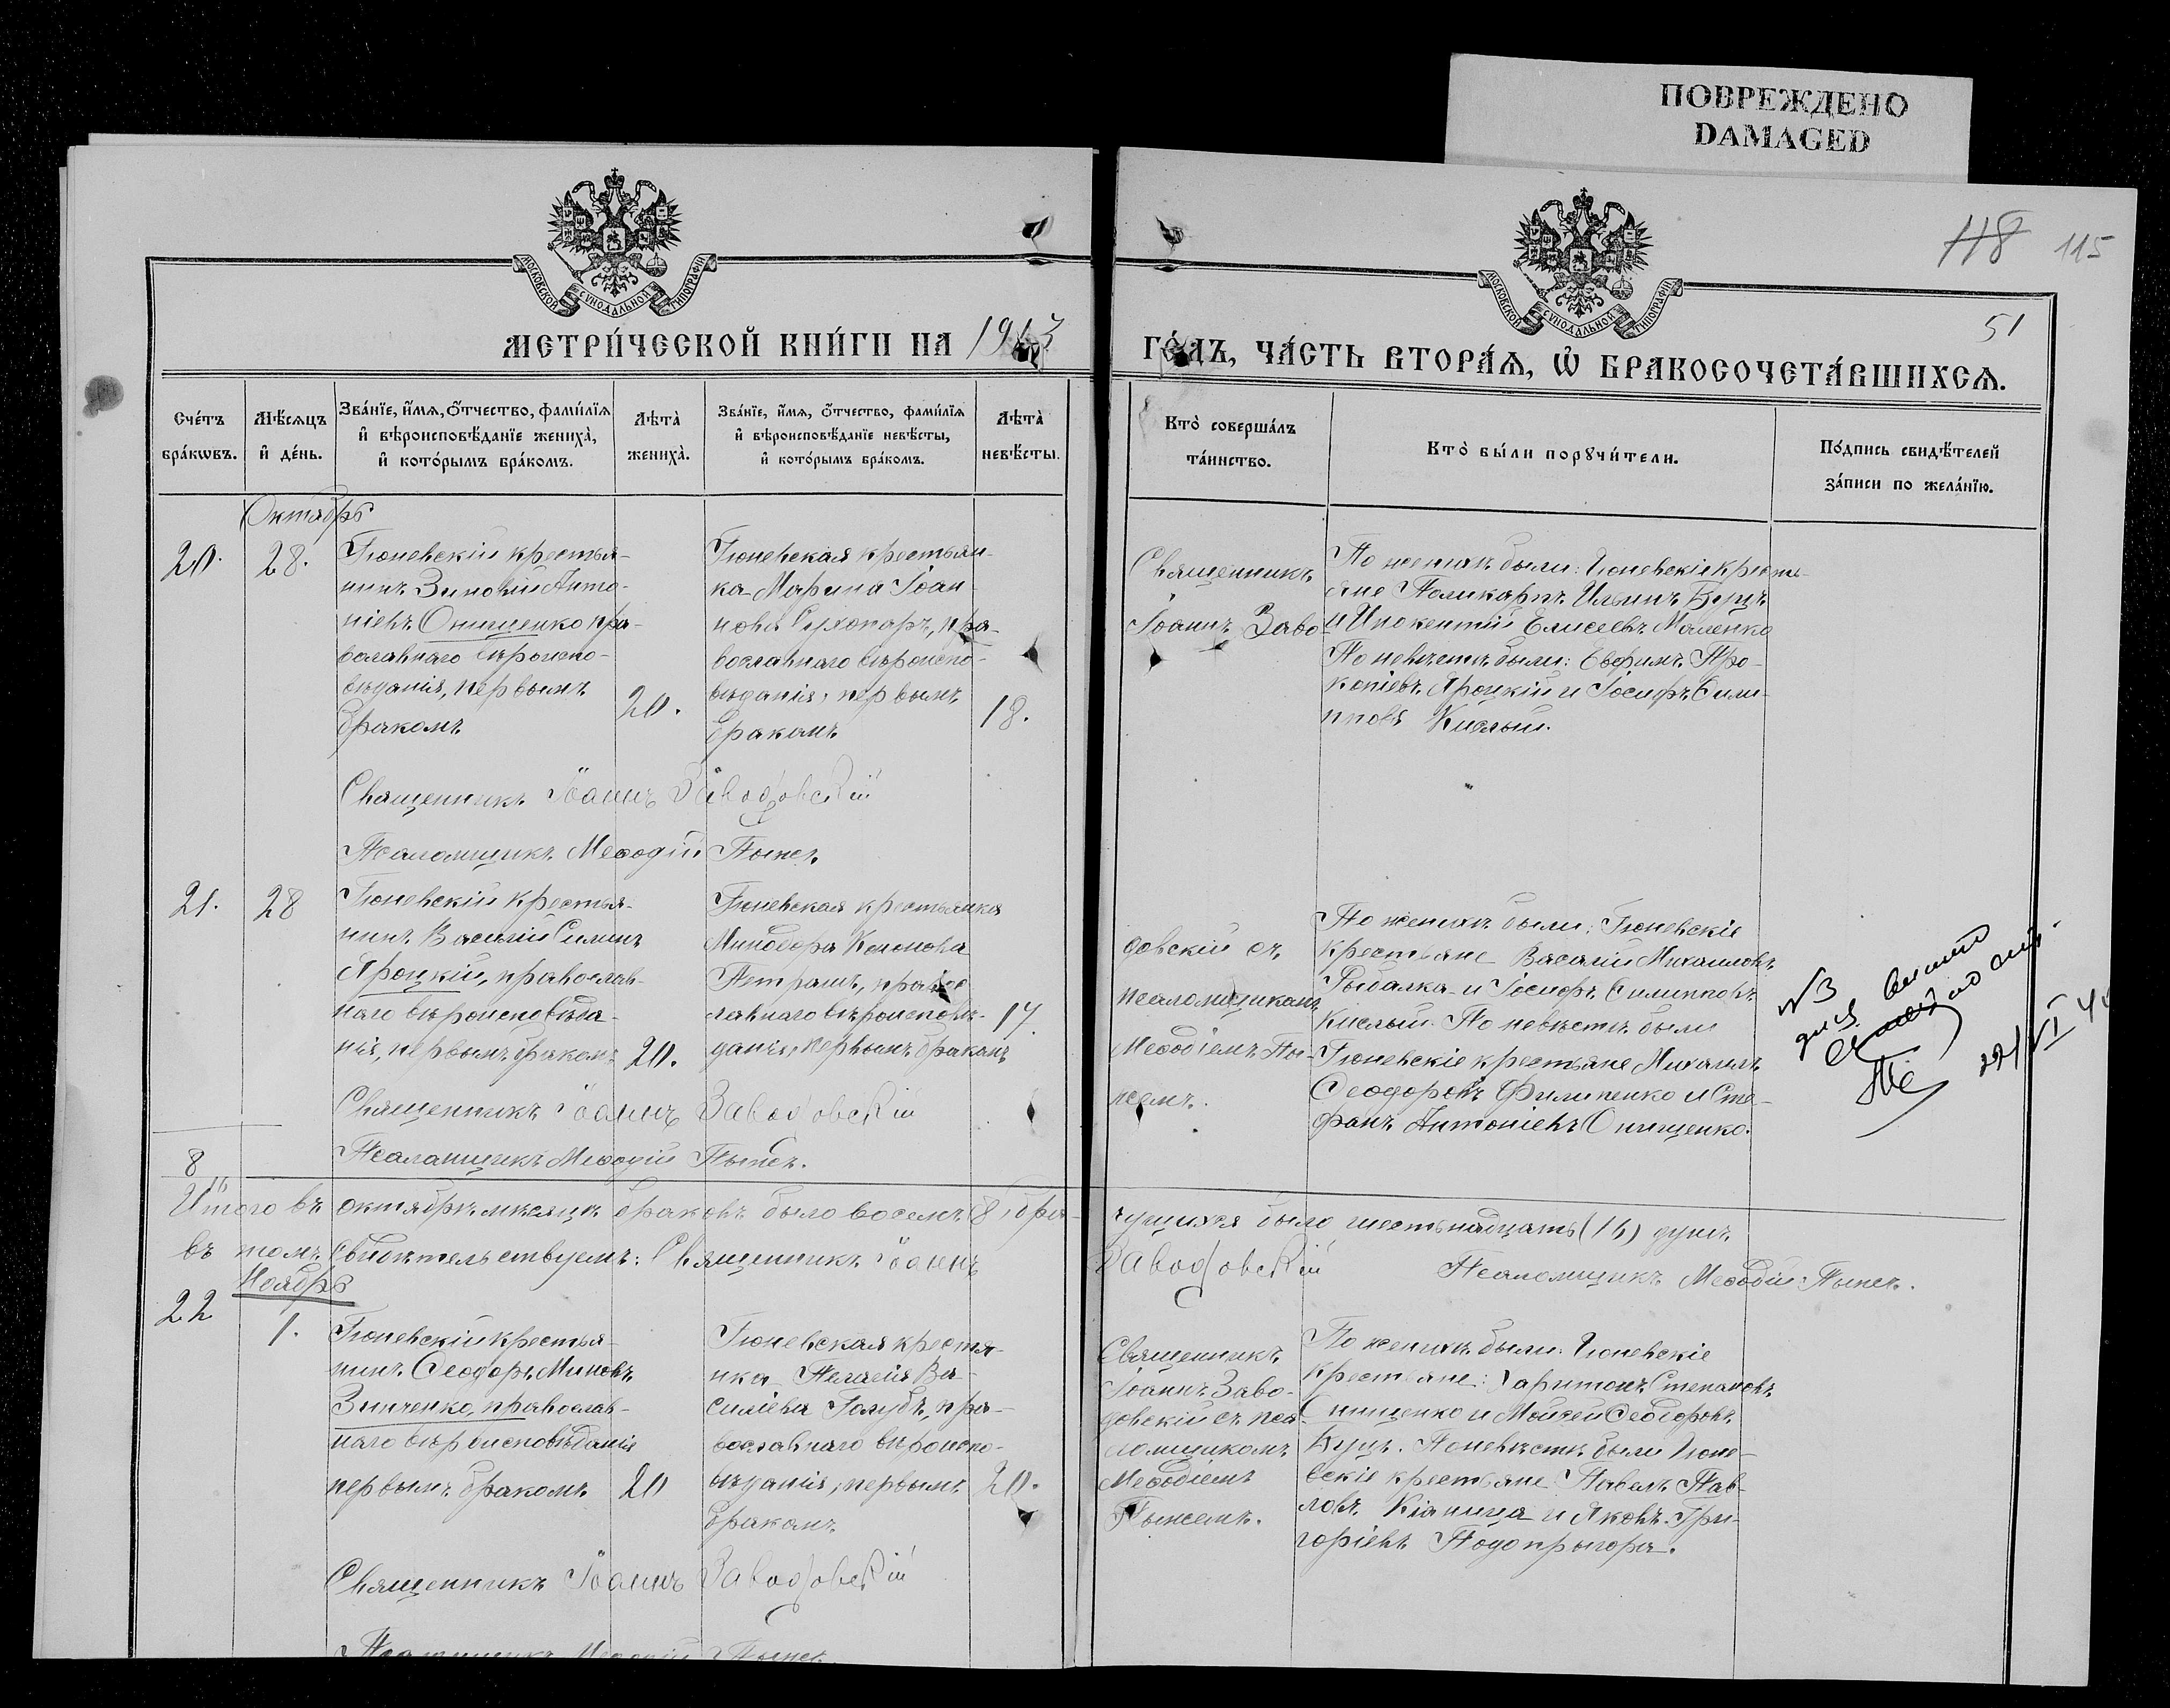 ПОВРЕЖДЕНО
DAMAGED
МОСКОВСКОЙ СѴНОДАЛЬНОЙ ТИПОГРАФІИ
МОСКОВСКОЙ СѴНОДАЛЬНОЙ ТИПОГРАФІИ
118 115
51
МЕТРИ́ЧЕСКОЙ КНИ́ГИ НА 1913
ГО́ДЪ, ЧА́СТЬ ВТОРА́Я, Ѡ БРАКОСОЧЕТА́ВШИХСѦ.
Сче́тъ бра́кѡвъ.
Мѣ́сѧцъ и҆ де́нь.
Зва́нїе, и҆́мѧ, ѻ҆́тчество, фами́лїѧ
и҆ вѣроисповѣ́данїе жениха̀,
и҆ кото́рымъ бра́комъ.
Лѣта̀ жениха̀.
Зва́нїе, и҆́мѧ, ѻ҆́тчество, фами́лїѧ
и҆ вѣроисповѣ́данїе невѣ́сты,
и҆ кото́рымъ бра́комъ.
Лѣта̀ невѣ́сты.
Кто̀ соверша́лъ
та́инство.
Кто̀ бы́ли порꙋчи́тели.
По́дпись свидѣ́телей
за́писи по жела́нїю.
Октябрь
20. 28.
Тюневскій крестья-
нинъ Зиновій Анто-
ніевъ Онищенко пра-
вославнаго вѣроиспо-
вѣданія, первымъ
бракомъ
20.
Тюневская крестьян-
ка Марина Іоан-
нова Сухопаръ, пра-
вославнаго вѣроиспо-
вѣданія, первымъ
бракомъ
18.
Священникъ
Іоаннъ Заво
По женихѣ были: Тюневскіе кресть-
яне Поликарпъ Ильинъ Буцъ
и Инокентій Елисеевъ Маленко
По невѣстѣ были: Евфимъ Про-
копіевъ Яроцкій и Іосифъ Фили-
пповъ Кислый.
Священникъ Іоаннъ Заводовскій
Псаломщикъ Меѳодій Пыжъ.
21. 28
Тюневскій крестья-
нинъ Василій Силинъ
Яроцкій, православ-
наго вѣроисповѣда-
нія, первымъ бракомъ
20.
Тюневская крестьянка
Минодора Кононова
Петрашъ, правос
лавнаго вѣроисповѣ-
данія, первымъ бракомъ
17.
довскій съ
псаломщикомъ
Меѳодіемъ Пы-
жемъ.
По женихѣ были: Тюневскіе
крестьяне Василій Михаиловъ
Рыбалка и Іосифъ Филипповъ
Кислый. По невѣстѣ были
Тюневскіе крестьяне Михаилъ
Ѳеодоровъ Филипенко и Сте-
фанъ Антоніевъ Онищенко.
N3
22/VI
Священникъ Іоаннъ Заводовскій
Псаломщикъ Меѳодій Пыжъ.
8
16
Итого въ октябрѣ мѣсяцѣ браковъ было восемь (8) бра-
чущихся было шестьнадцать (16) душъ
въ томъ свидѣтельствуемъ: Священникъ Іоаннъ
Заводовскій Псаломщикъ Меѳодій Пыжъ.
Ноябрь
22 1.
Тюневскій крестья-
нинъ Ѳеодоръ Миновъ
Зинченко, православ-
наго вѣроисповѣданія
первымъ бракомъ
20
Тюневская крестя-
нка Пелагія Ва-
силіева Голубъ, пра-
вославнаго вѣроиспо-
вѣданія, первымъ
бракомъ
20.
Священникъ
Іоаннъ Заво-
довскій съ пса-
ломщикомъ
Меѳодіемъ
Пыжемъ.
По женихѣ были: Тюневскіе
крестьяне: Харитонъ Степановъ
Онищенко и Моисей Ѳеодоровъ
Буцъ. По невѣстѣ были Тюне-
вскіе крестьяне Павелъ Пав-
ловъ Кіяница и Яковъ Гри-
горіевъ Подопрыгора.
Священникъ Іоаннъ Заводовскій
Псаломщикъ Меѳодій Пыжъ